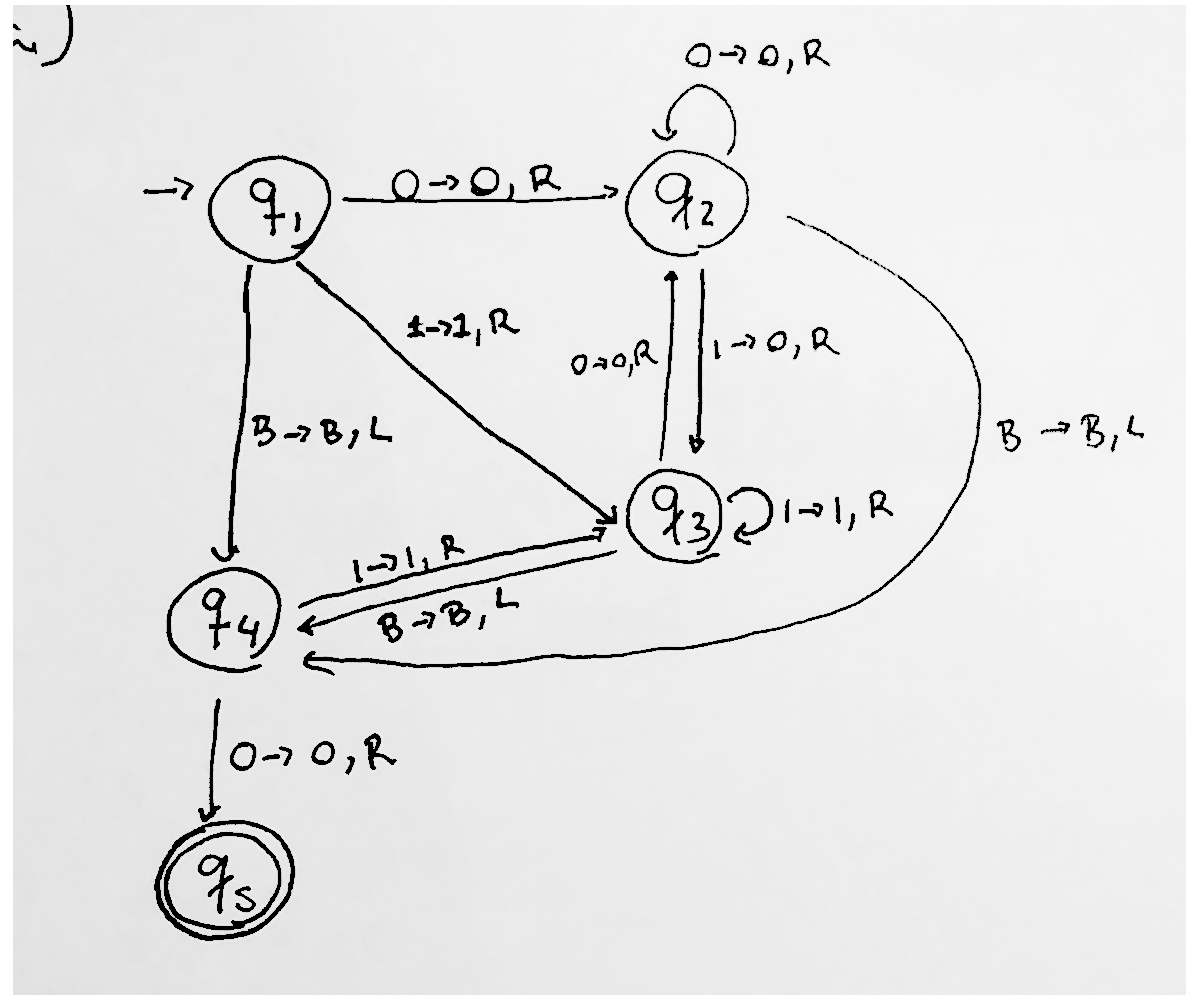 0→0, R
q1
0→0, R
q2
1→1, R
0→0, R
1→0, R
B→B, L
B→B, L
q3
1→1, R
1→1, R
B→B, L
q4
0→0, R
q5